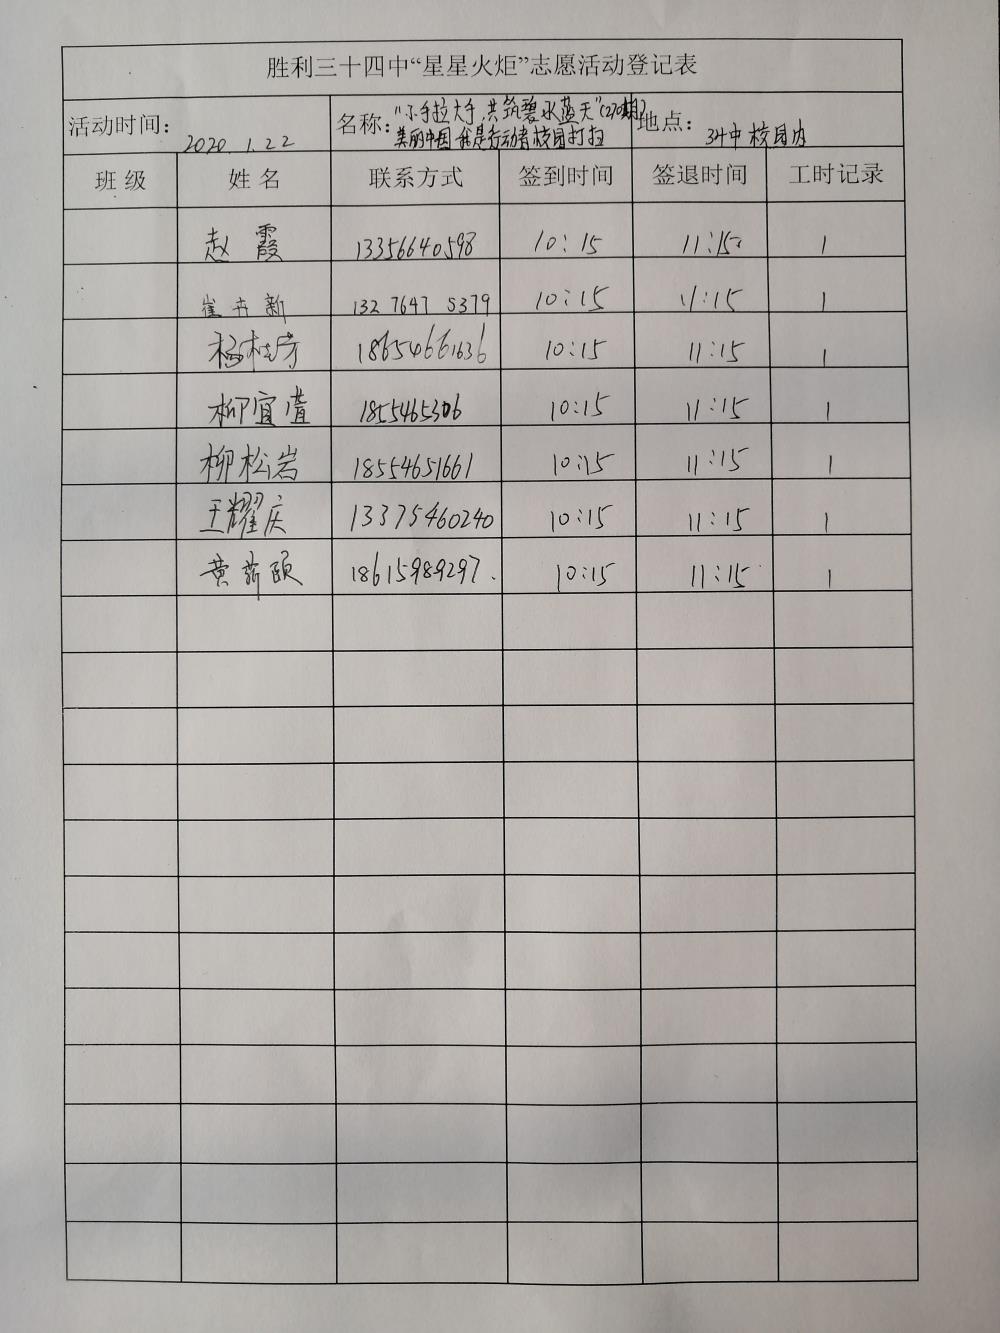 胜利三十四中“星星火炬”志愿活动登记表
活动时间： 2020.1.22 名称：“小手拉大手，共筑碧水蓝天”(270期) 地点： 34中校园内
美丽中国 我是行动者 校园打扫
班级 姓名 联系方式 签到时间 签退时间 工时记录
赵霞 13356640598 10:15 11:15 1
崔卉新 132 7647 5379 10:15 11:15 1
杨桂芳 18654661636 10:15 11:15 1
柳宜 1855465306 10:15 11:15 1
柳松岩 18554651661 10:15 11:15 1
王耀庆 13375460240 10:15 11:15 1
黄颐 18615989297. 10:15 11:15 1